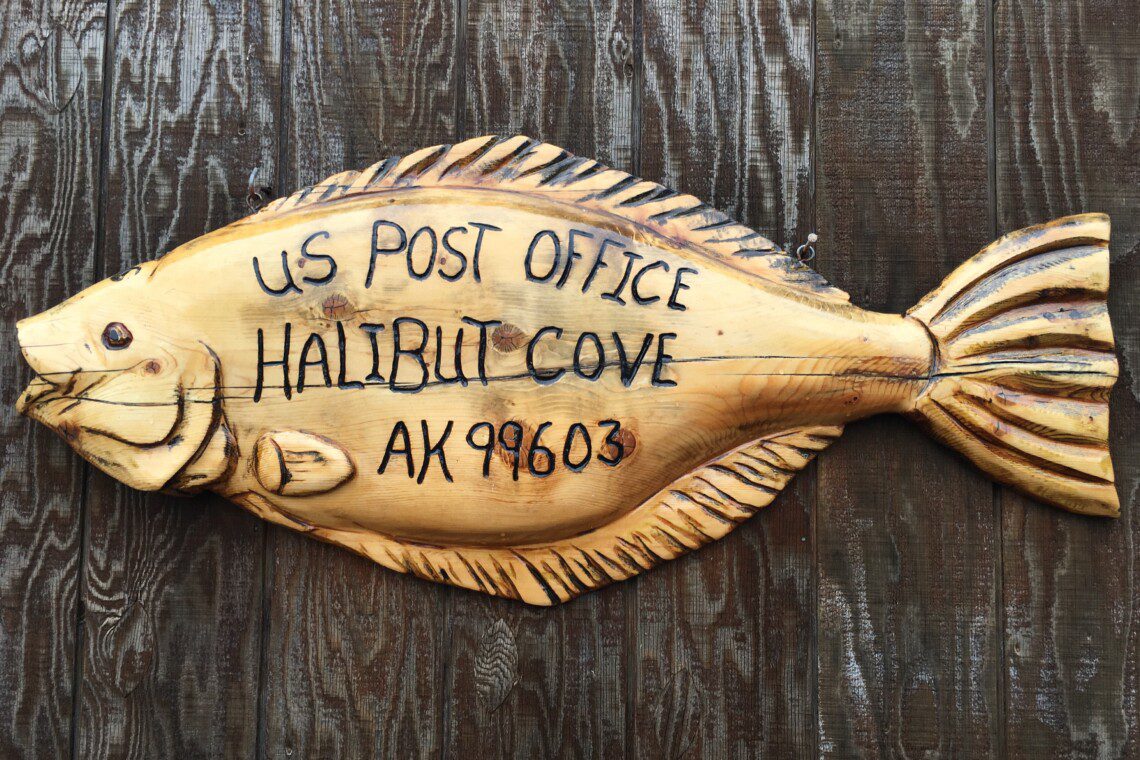 US POST OFFICE
HALIBUT COVE
AK 99603